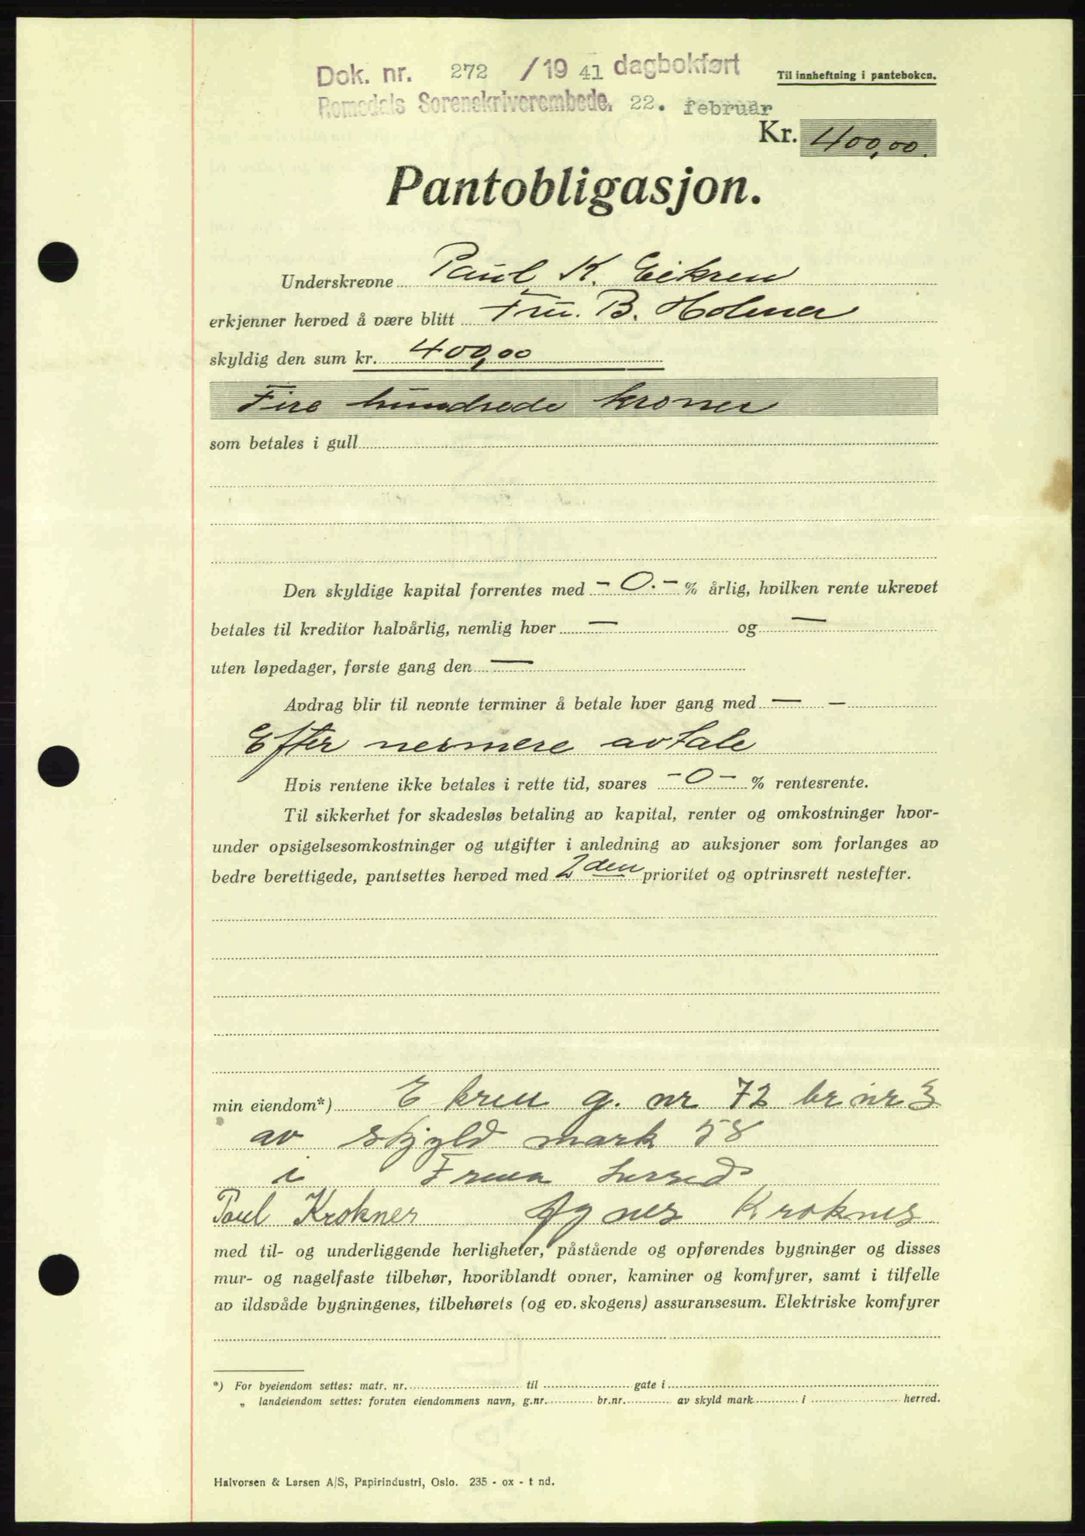 Dok. nr. 272 /1941 dagbokført
Til innheftning i panteboken.
Romsdals Sorenskriverembede, 22. februar
Kr. 400,00.
Pantobligasjon.
Underskrevne Paul K. Eikren
erkjenner herved å være blitt Fru. B. Holmer
skyldig den sum kr. 400,00
Fire hundrede kroner
som betales i gull
Den skyldige kapital forrentes med -0.- % årlig, hvilken rente ukrevet
betales til kreditor halvårlig, nemlig hver — og —
uten løpedager, første gang den —
Avdrag blir til nevnte terminer å betale hver gang med — –
Efter nermere avtale
Hvis rentene ikke betales i rette tid, svares -0- % rentesrente.
Til sikkerhet for skadesløs betaling av kapital, renter og omkostninger hvor-
under opsigelsesomkostninger og utgifter i anledning av auksjoner som forlanges av
bedre berettigede, pantsettes herved med 2den prioritet og optrinsrett nestefter.
min eiendom*) Ekren g. nr 72 br nr 3
av skjyld mark 58
i Frena herred
Paul Krokner Agnes Kroknes
med til- og underliggende herligheter, påstående og opførendes bygninger og disses
mur- og nagelfaste tilbehør, hvoriblandt ovner, kaminer og komfyrer, samt i tilfelle
av ildsvåde bygningenes, tilbehørets (og ev. skogens) assuransesum. Elektriske komfyrer
*) For byeiendom settes: matr. nr. til gate i
„ landeiendom settes: foruten eiendommens navn, g.nr. br.nr. av skyld mark i herred.
Halvorsen & Larsen A/S, Papirindustri, Oslo. 235 - ox - t nd.